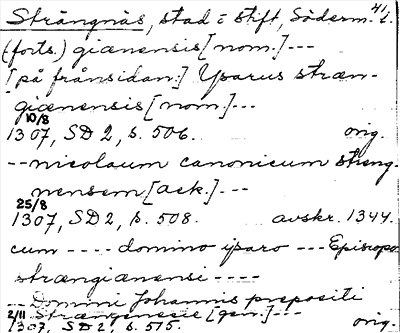 Strängnäs, stad i stift, Söderm. l. 41.
(forts.) giænensis [nom.] ---
[på frånsidan:] Yparus stræn-
giænensis [nom.] ---
10/8
1307, SD 2, s. 506. orig.
-- nicolaum canonicum streng-
nensem [ack.] ---
25/8
1307, SD 2, s. 508. avskr. 1344.
cum ---- domino yparo --- Episcopo
strængianensi ----
-- Domini Johannis prepositi
2/11 Strængenecie [gen.] ---
1307, SD 2, s. 515. orig.